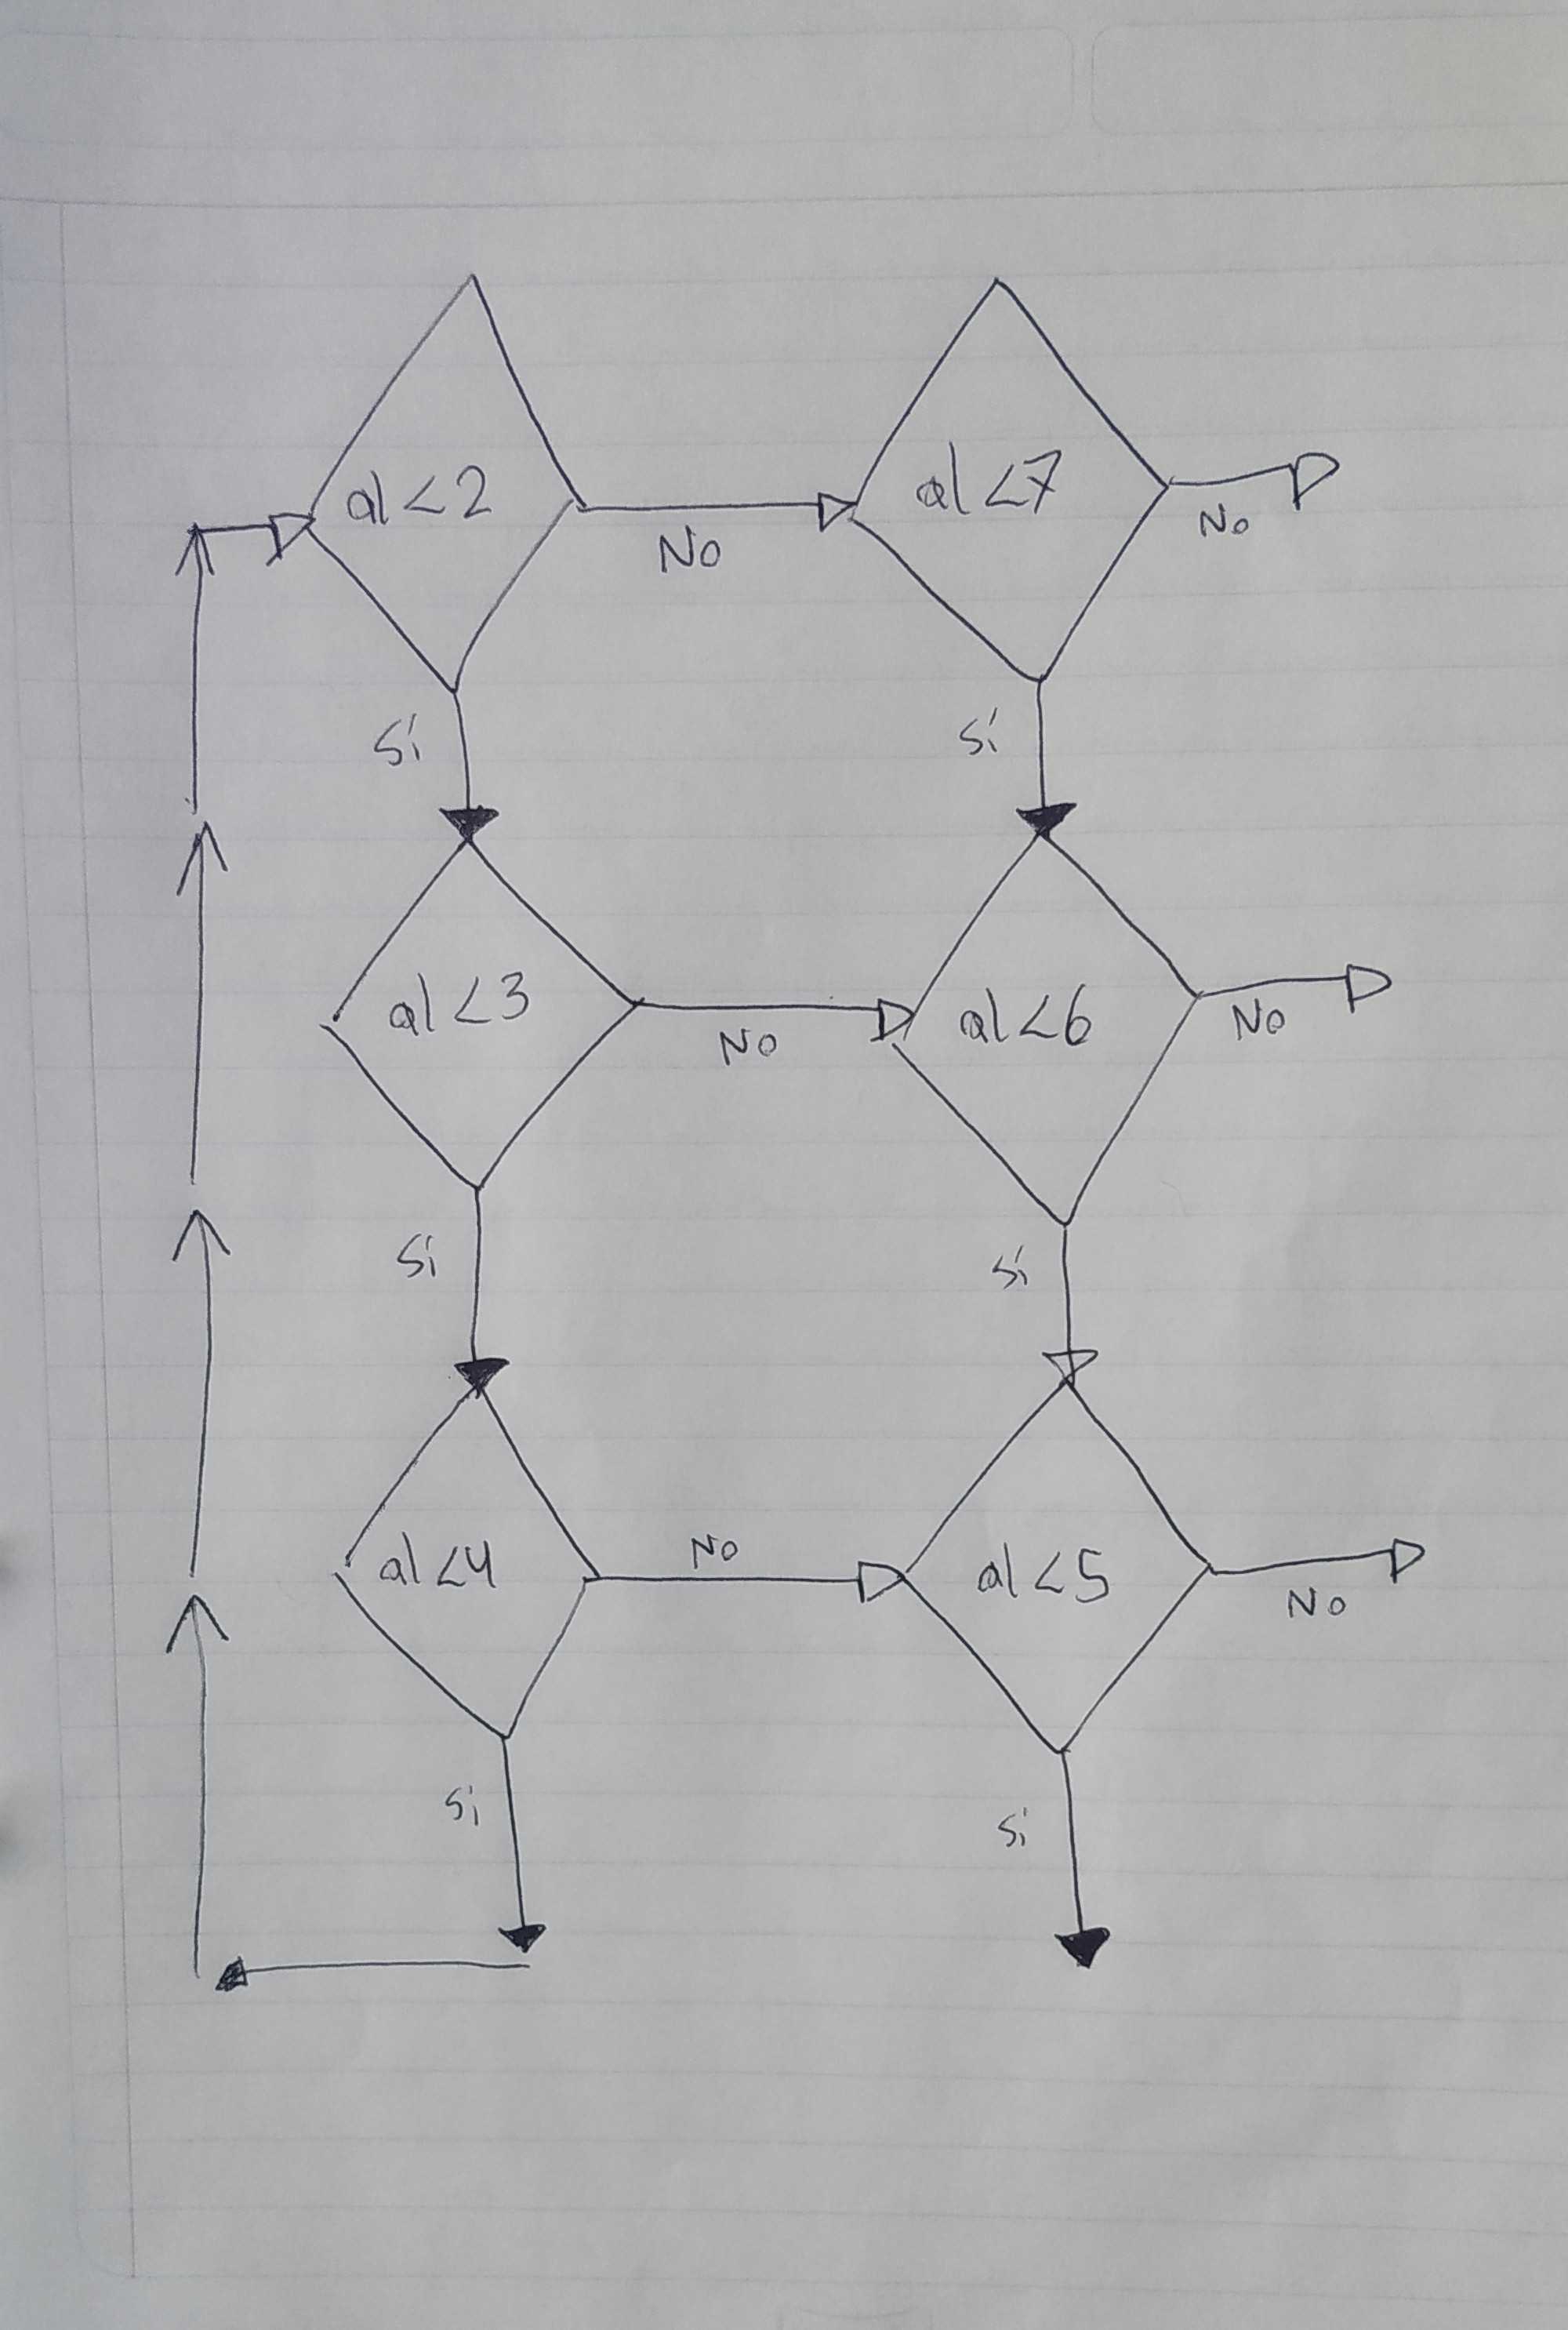 al <2
al <7
No
No
Si
Si
al <3
al <6
No
No
Si
Si
al <4
No
al <5
No
Si
Si